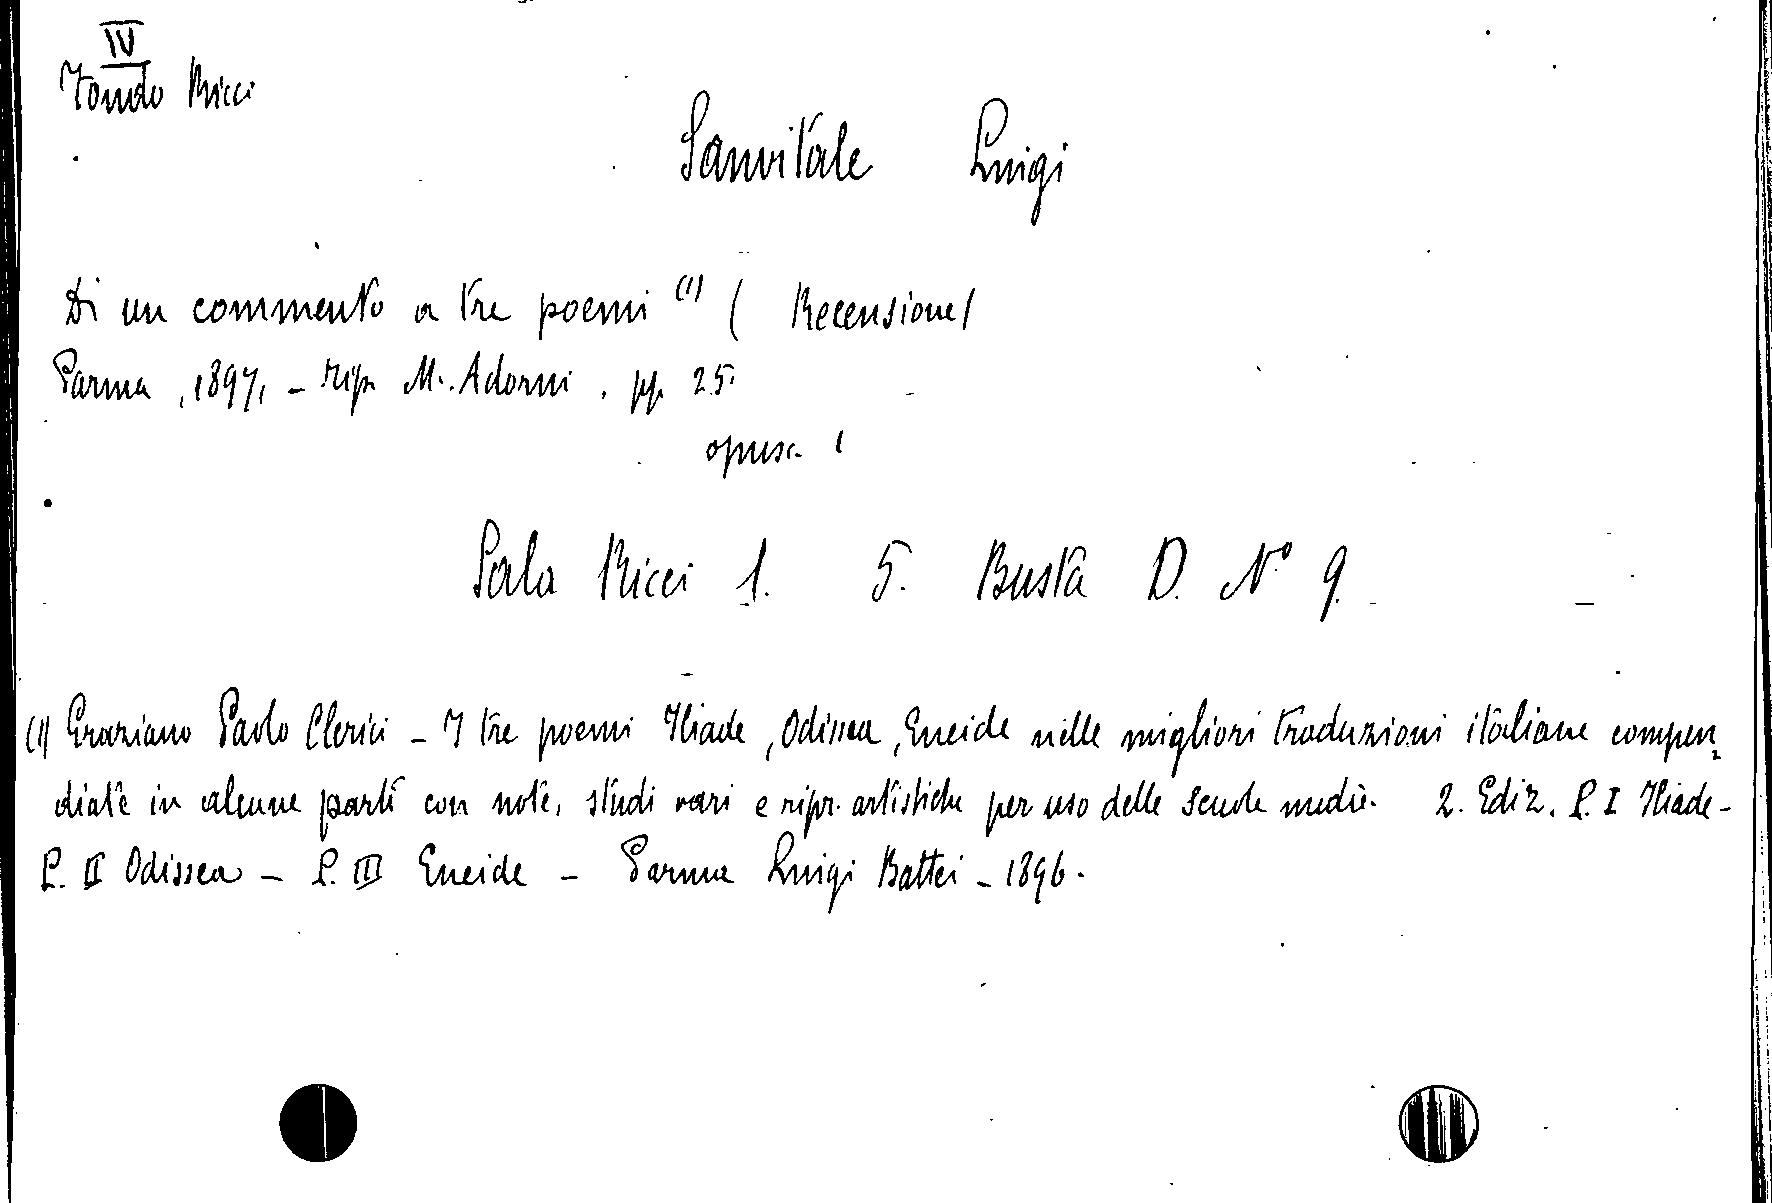 IV
Fondo Ricci
Sanvitale Luigi
Di un commento a tre poemi (1) ( Recensione/
Parma, 1897, - tip. M. Adorni. pp. 25.
opusc. 1
Sala Ricci 1. 5. Busta D. N° 9.
(1) Graziano Paolo Clerici - I tre poemi Iliade, Odissea, Eneide nelle migliori traduzioni italiane compen=
diate in alcune parti con note, studi vari e ripr. artistiche per uso delle scuole medie. 2. Ediz. P. I Iliade -
P. II Odissea - P. III Eneide - Parma Luigi Battei - 1896.